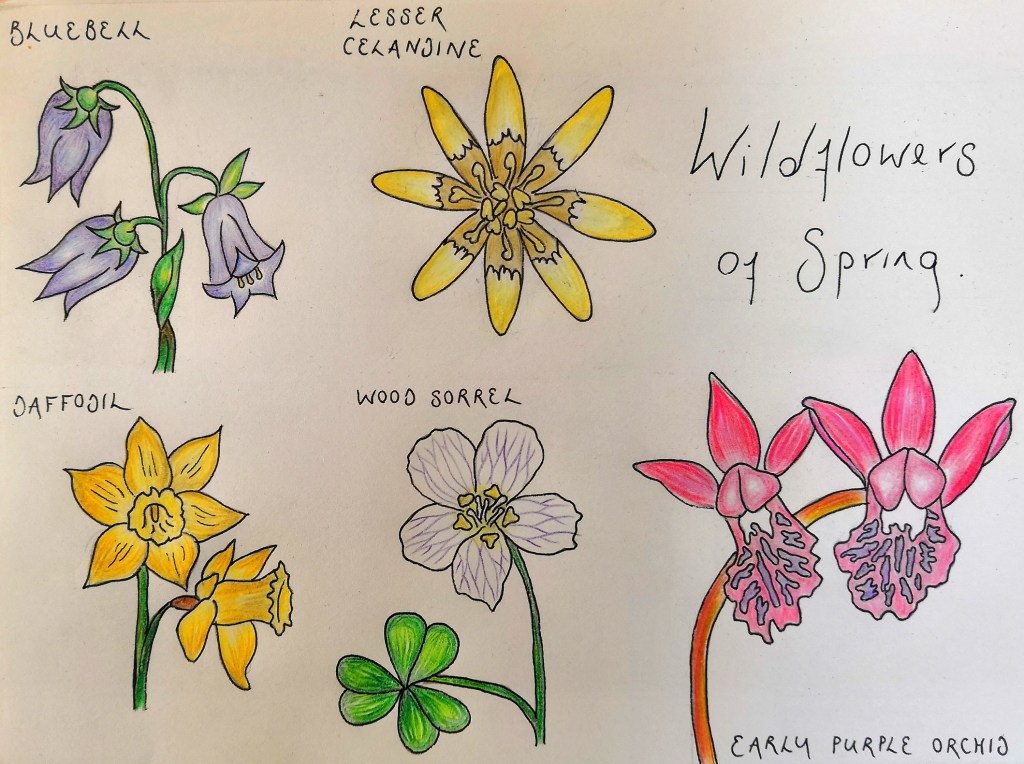 BLUEBELL
LESSER
CELANDINE
Wildflowers
of Spring.
DAFFODIL
WOOD SORREL
EARLY PURPLE ORCHID